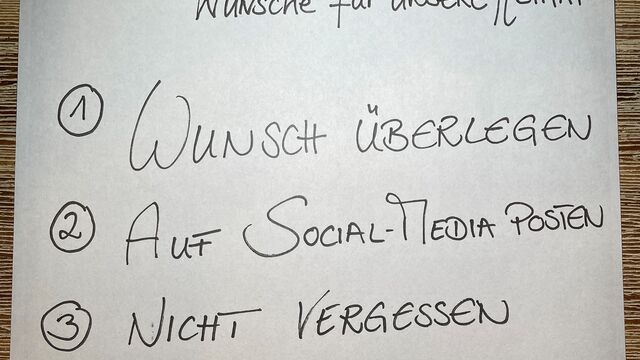 Wünsche für unsere Heimat
① Wunsch überlegen
② Auf Social-Media posten
③ Nicht vergessen